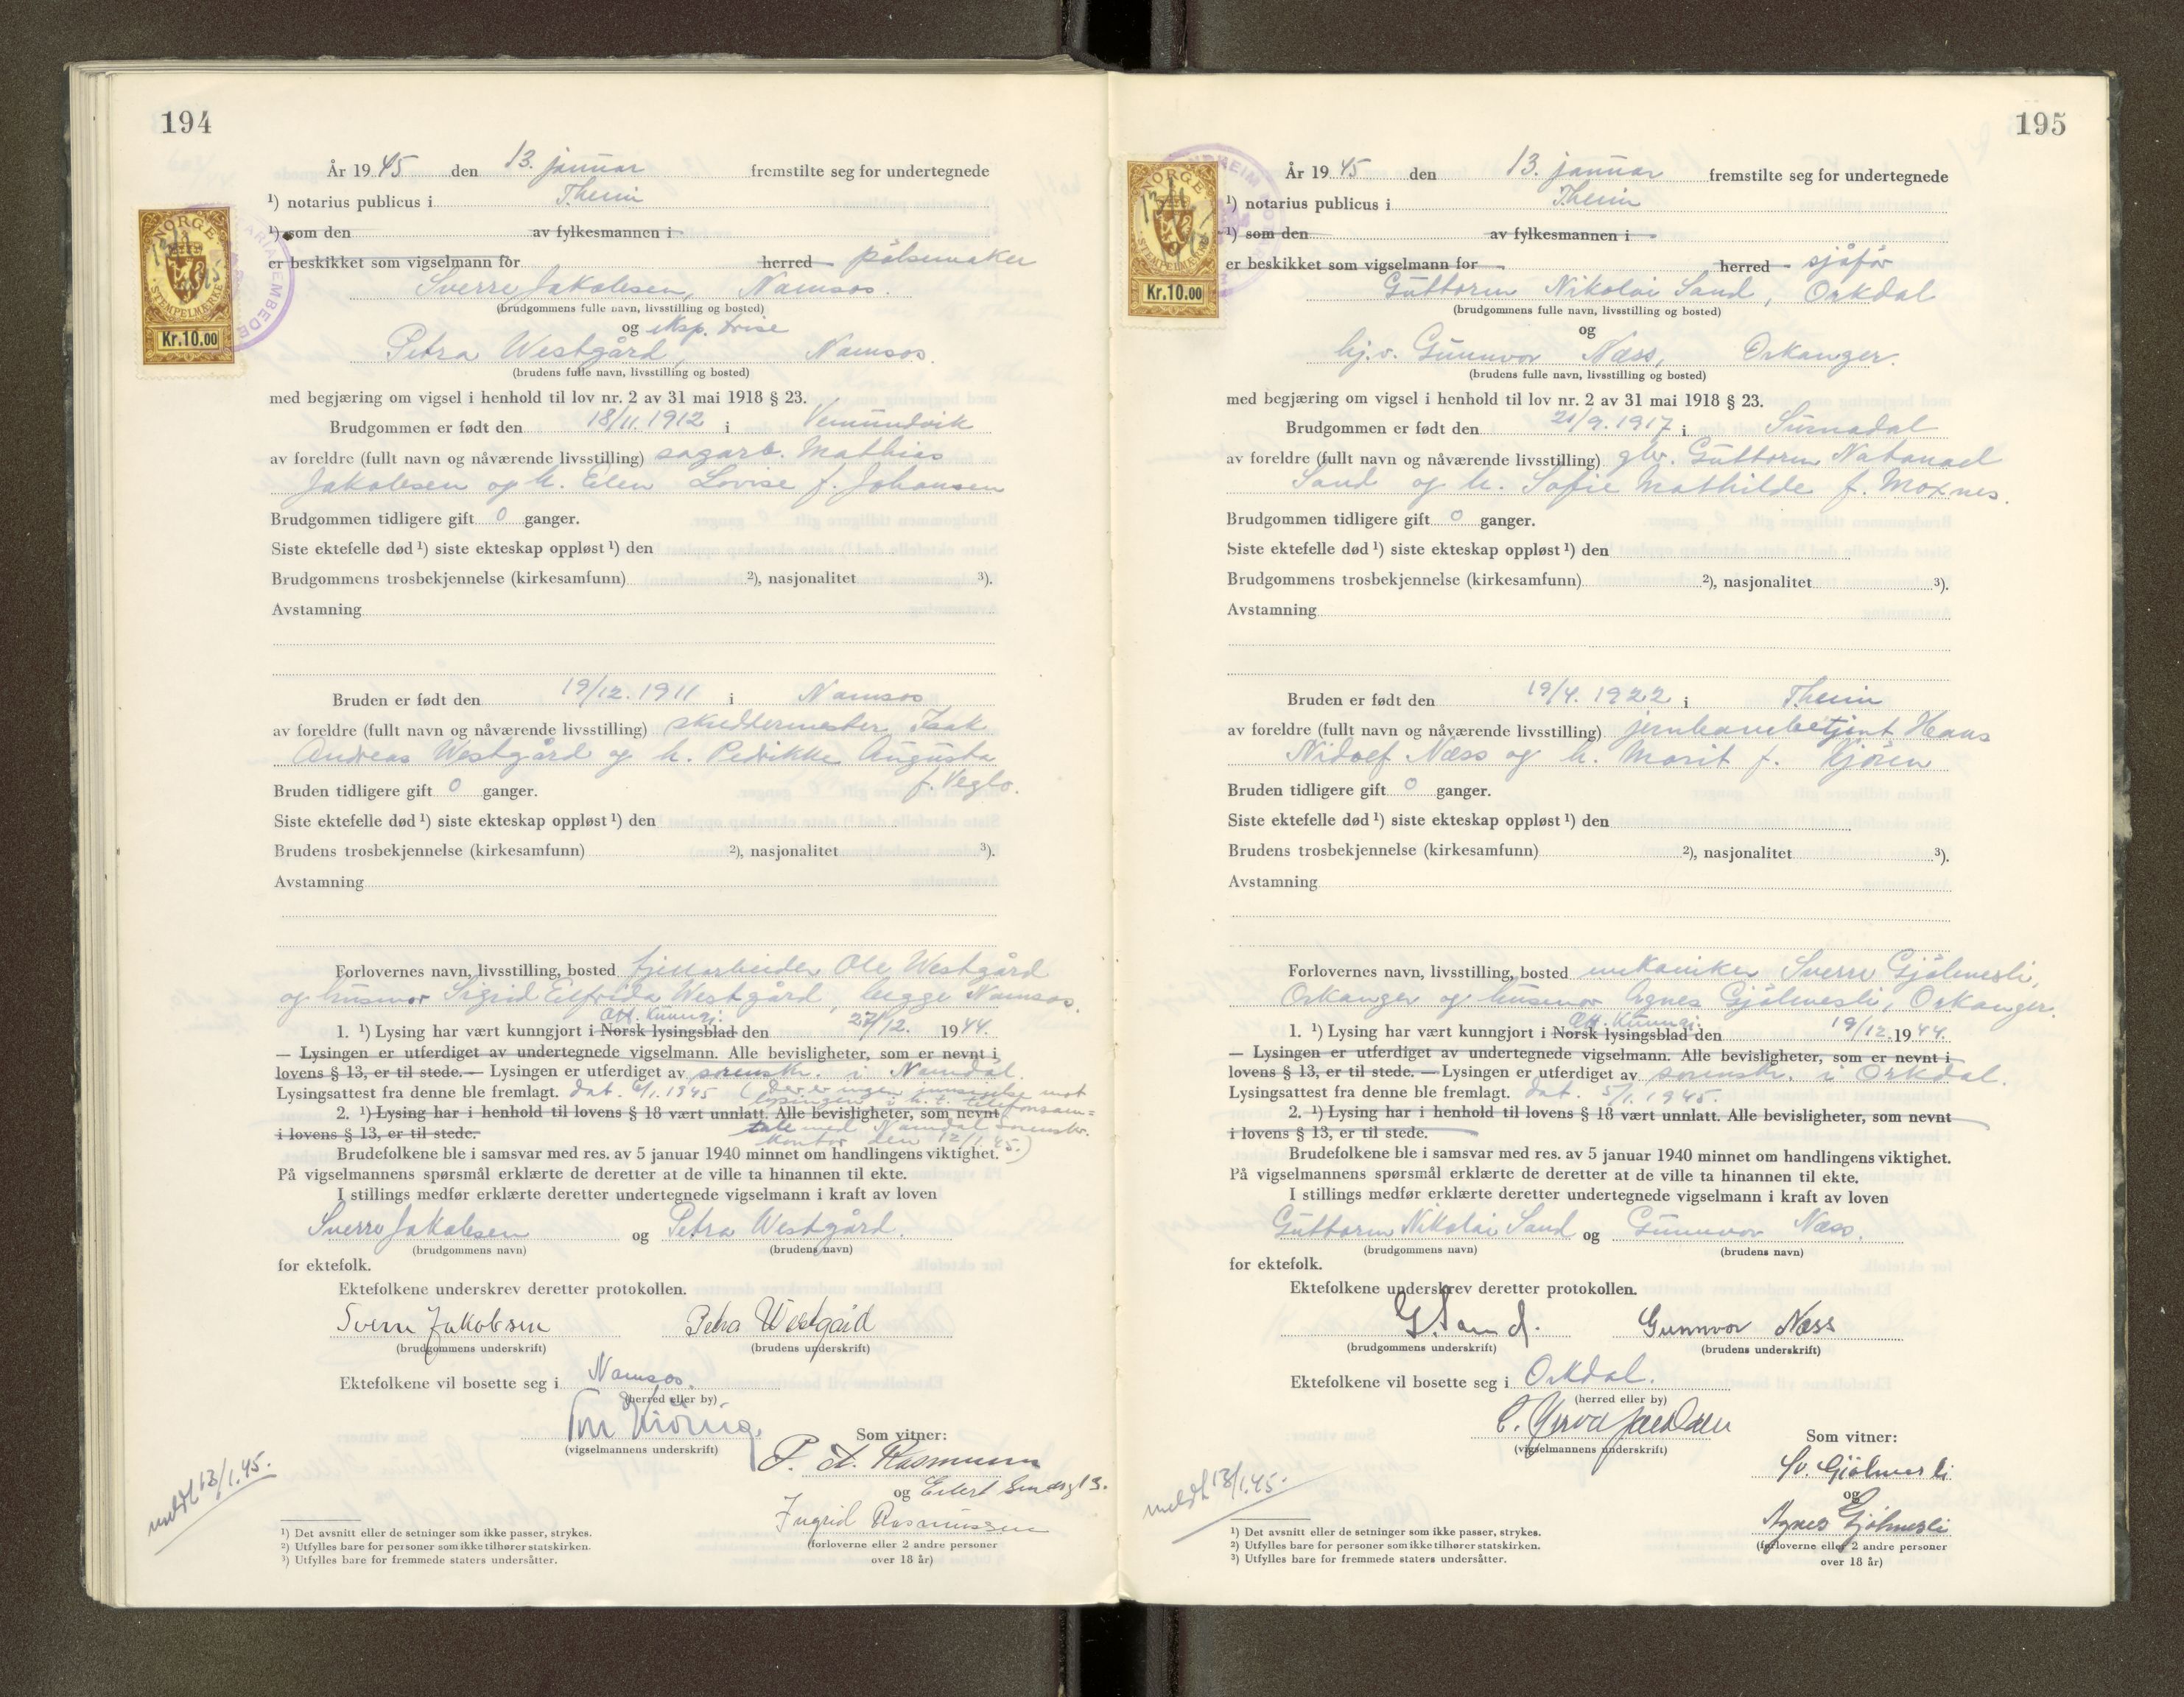 194
År 19 45 den 13. januar fremstilte seg for undertegnede
¹) notarius publicus i Theim
¹) som den av fylkesmannen i
er beskikket som vigselmann for herred pølsemaker
Sverre Jakobsen, Namsos.
(brudgommens fulle navn, livsstilling og bosted)
og eksp. trise
Petra Westgård, Namsos.
(brudens fulle navn, livsstilling og bosted)
med begjæring om vigsel i henhold til lov nr. 2 av 31 mai 1918 § 23.
Brudgommen er født den 18/11. 1912 i Vemundvik
av foreldre (fullt navn og nåværende livsstilling) sagarb. Mathias
Jakobsen og h. Elen Lovise f. Johansen
Brudgommen tidligere gift 0 ganger.
Siste ektefelle død ¹) siste ekteskap oppløst ¹) den
Brudgommens trosbekjennelse (kirkesamfunn) ²), nasjonalitet ³).
Avstamning
Bruden er født den 19/12. 1911 i Namsos
av foreldre (fullt navn og nåværende livsstilling) skuddermester Isak
Andreas Westgård og h. Pedrikke Augusta
f. Veglo.
Bruden tidligere gift 0 ganger.
Siste ektefelle død ¹) siste ekteskap oppløst ¹) den
Brudens trosbekjennelse (kirkesamfunn) ²), nasjonalitet ³).
Avstamning
Forlovernes navn, livsstilling, bosted fjellarbeider Ole Westgård
og husmor Sigrid Elfrida Westgård, begge Namsos.
Off. Kunngj.
1. ¹) Lysing har vært kunngjort i Norsk lysingsblad den 27/12. 1944.
— Lysingen er utferdiget av undertegnede vigselmann. Alle bevisligheter, som er nevnt i
lovens § 13, er til stede. — Lysingen er utferdiget av sorenskr. i Namdal.
Lysingsattest fra denne ble fremlagt. dat. 6/1. 1945 (Der er ingen innsigelse mot
lysingen i h. t. telefonsam=
2. ¹) Lysing har i henhold til lovens § 18 vært unnlatt. Alle bevisligheter, som nevnt
i lovens § 13, er til stede. tale med Namdal sorenskr.
kontor den 12/1. 45.)
Brudefolkene ble i samsvar med res. av 5 januar 1940 minnet om handlingens viktighet.
På vigselmannens spørsmål erklærte de deretter at de ville ta hinannen til ekte.
I stillings medfør erklærte deretter undertegnede vigselmann i kraft av loven
Sverre Jakobsen og Petra Westgård.
(brudgommens navn) (brudens navn)
for ektefolk.
Ektefolkene underskrev deretter protokollen.
Sverre Jakobsen Petra Westgård
(brudgommens underskrift) (brudens underskrift)
Ektefolkene vil bosette seg i Namsos.
(herred eller by)
(vigselmannens underskrift)
Som vitner:
P. A. Rasmussen
og Eilert Sundsgt 3.
Ingrid Rasmussen
(forloverne eller 2 andre personer
over 18 år)
meldt 13/1. 45.
¹) Det avsnitt eller de setninger som ikke passer, strykes.
²) Utfylles bare for personer som ikke tilhører statskirken.
³) Utfylles bare for fremmede staters undersåtter.
NORGE
STEMPELMERKE
Kr.10.00
195
År 19 45 den 13. januar fremstilte seg for undertegnede
¹) notarius publicus i Theim
¹) som den av fylkesmannen i
er beskikket som vigselmann for herred sjåfør
Guttorm Nikolai Sand, Orkdal
(brudgommens fulle navn, livsstilling og bosted)
og
hj.v. Gunnvor Næss, Orkanger.
(brudens fulle navn, livsstilling og bosted)
med begjæring om vigsel i henhold til lov nr. 2 av 31 mai 1918 § 23.
Brudgommen er født den 21/9. 1917 i Surnadal
av foreldre (fullt navn og nåværende livsstilling) gbr. Guttorm Natanael
Sand og h. Sofie Mathilde f. Moxnes.
Brudgommen tidligere gift 0 ganger.
Siste ektefelle død ¹) siste ekteskap oppløst ¹) den
Brudgommens trosbekjennelse (kirkesamfunn) ²), nasjonalitet ³).
Avstamning
Bruden er født den 19/4. 1922 i Theim
av foreldre (fullt navn og nåværende livsstilling) jernbanebetjent Hans
Nidolf Næss og h. Marit f. Kjøren
Bruden tidligere gift 0 ganger.
Siste ektefelle død ¹) siste ekteskap oppløst ¹) den
Brudens trosbekjennelse (kirkesamfunn) ²), nasjonalitet ³).
Avstamning
Forlovernes navn, livsstilling, bosted mekaniker Sverre Gjølmesli,
Orkanger og husmor Agnes Gjølmesli, Orkanger.
Off. Kunngj.
1. ¹) Lysing har vært kunngjort i Norsk lysingsblad den 19/12. 1944.
— Lysingen er utferdiget av undertegnede vigselmann. Alle bevisligheter, som er nevnt i
lovens § 13, er til stede. — Lysingen er utferdiget av sorenskr. i Orkdal.
Lysingsattest fra denne ble fremlagt. dat. 5/1. 1945.
2. ¹) Lysing har i henhold til lovens § 18 vært unnlatt. Alle bevisligheter, som nevnt
i lovens § 13, er til stede.
Brudefolkene ble i samsvar med res. av 5 januar 1940 minnet om handlingens viktighet.
På vigselmannens spørsmål erklærte de deretter at de ville ta hinannen til ekte.
I stillings medfør erklærte deretter undertegnede vigselmann i kraft av loven
Guttorm Nikolai Sand og Gunnvor Næss.
(brudgommens navn) (brudens navn)
for ektefolk.
Ektefolkene underskrev deretter protokollen.
G. Sand. Gunnvor Næss
(brudgommens underskrift) (brudens underskrift)
Ektefolkene vil bosette seg i Orkdal.
(herred eller by)
(vigselmannens underskrift)
Som vitner:
Sv. Gjølmesli
og
Agnes Gjølmesli
(forloverne eller 2 andre personer
over 18 år)
meldt 13/1. 45.
¹) Det avsnitt eller de setninger som ikke passer, strykes.
²) Utfylles bare for personer som ikke tilhører statskirken.
³) Utfylles bare for fremmede staters undersåtter.
NORGE
STEMPELMERKE
Kr.10.00